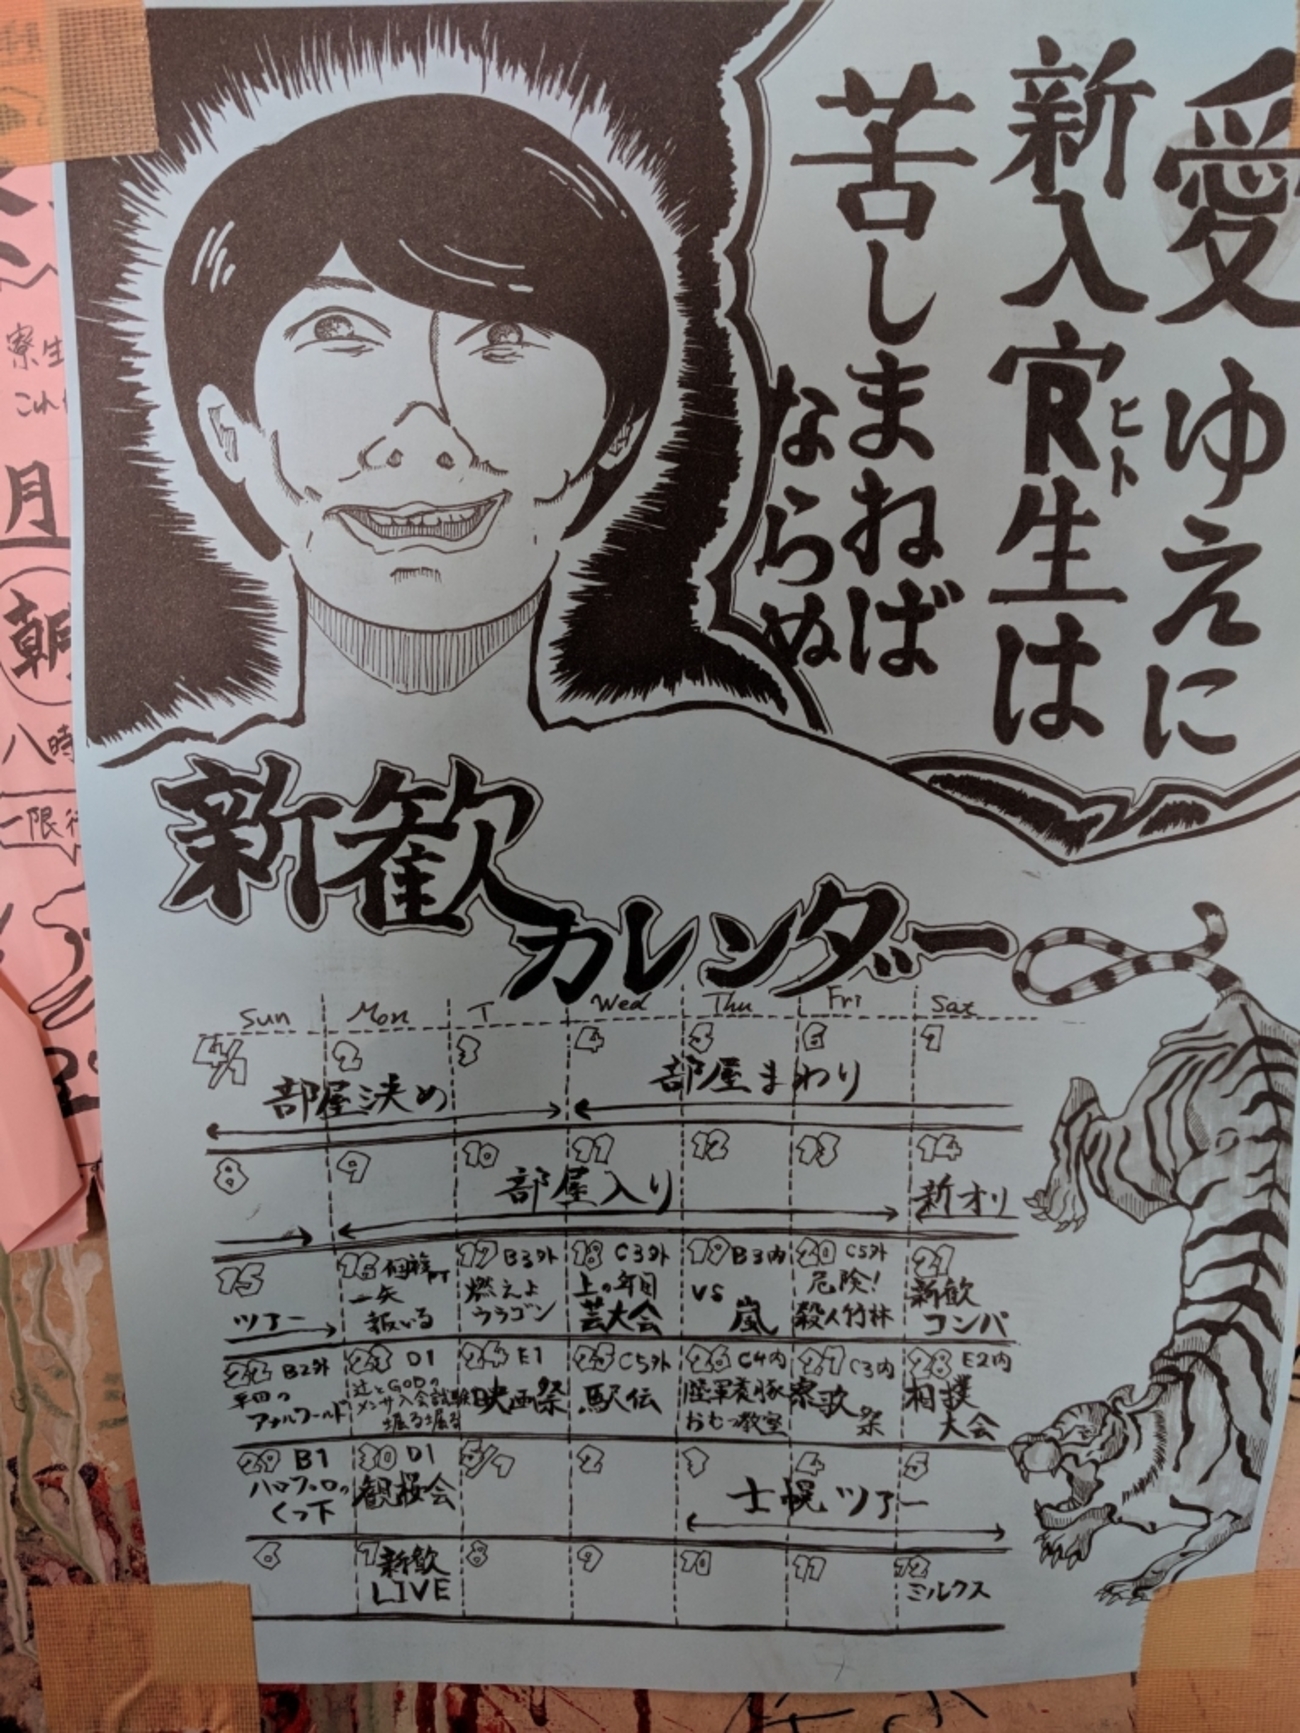 愛ゆえに
新入寮生は
ヒト
苦しまねば
ならぬ
新歓
カレンダー
Sun Mon T Wed Thu Fri Sat
4/1 2 3 4 5 6 7
部屋決め 部屋まわり
8 9 10 11 12 13 14
部屋入り 新オリ
15 16 17 B3外 18 C3外 19 B3内 20 C5外 21
ツアー
一矢
報いる
燃えよ
ウラゴン
上の年目
芸大会
VS
嵐
危険!
殺人竹林
新歓
コンパ
22 B2外 23 D1 24 E1 25 C5外 26 C4内 27 C3内 28 E2内
平田の
アナルワールド
辻とGODの
メンサ入会試験
堀る堀る
映画祭
駅伝
おむつ教室
寮歌
祭
相撲
大会
29 B1 30 D1 5/1 2 3 4 5
くつ下
観桜会
士幌ツアー
6 7 8 9 10 11 12
新歓
LIVE
ミルクス
寮生
これ
月
朝
八時
一限